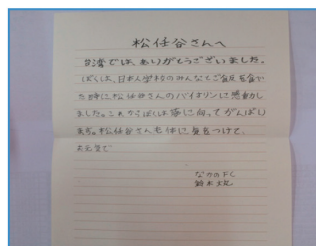 松任谷さんへ
台湾では、ありがとうございました。
ぼくは、日本人学校のみんなと
た時に松任谷さんのバイオリンに感動し
ました。これからぼくは夢に向ってがんばし
ます。松任谷さんも体に気をつけて、
お元気で
なかのFC
鈴木